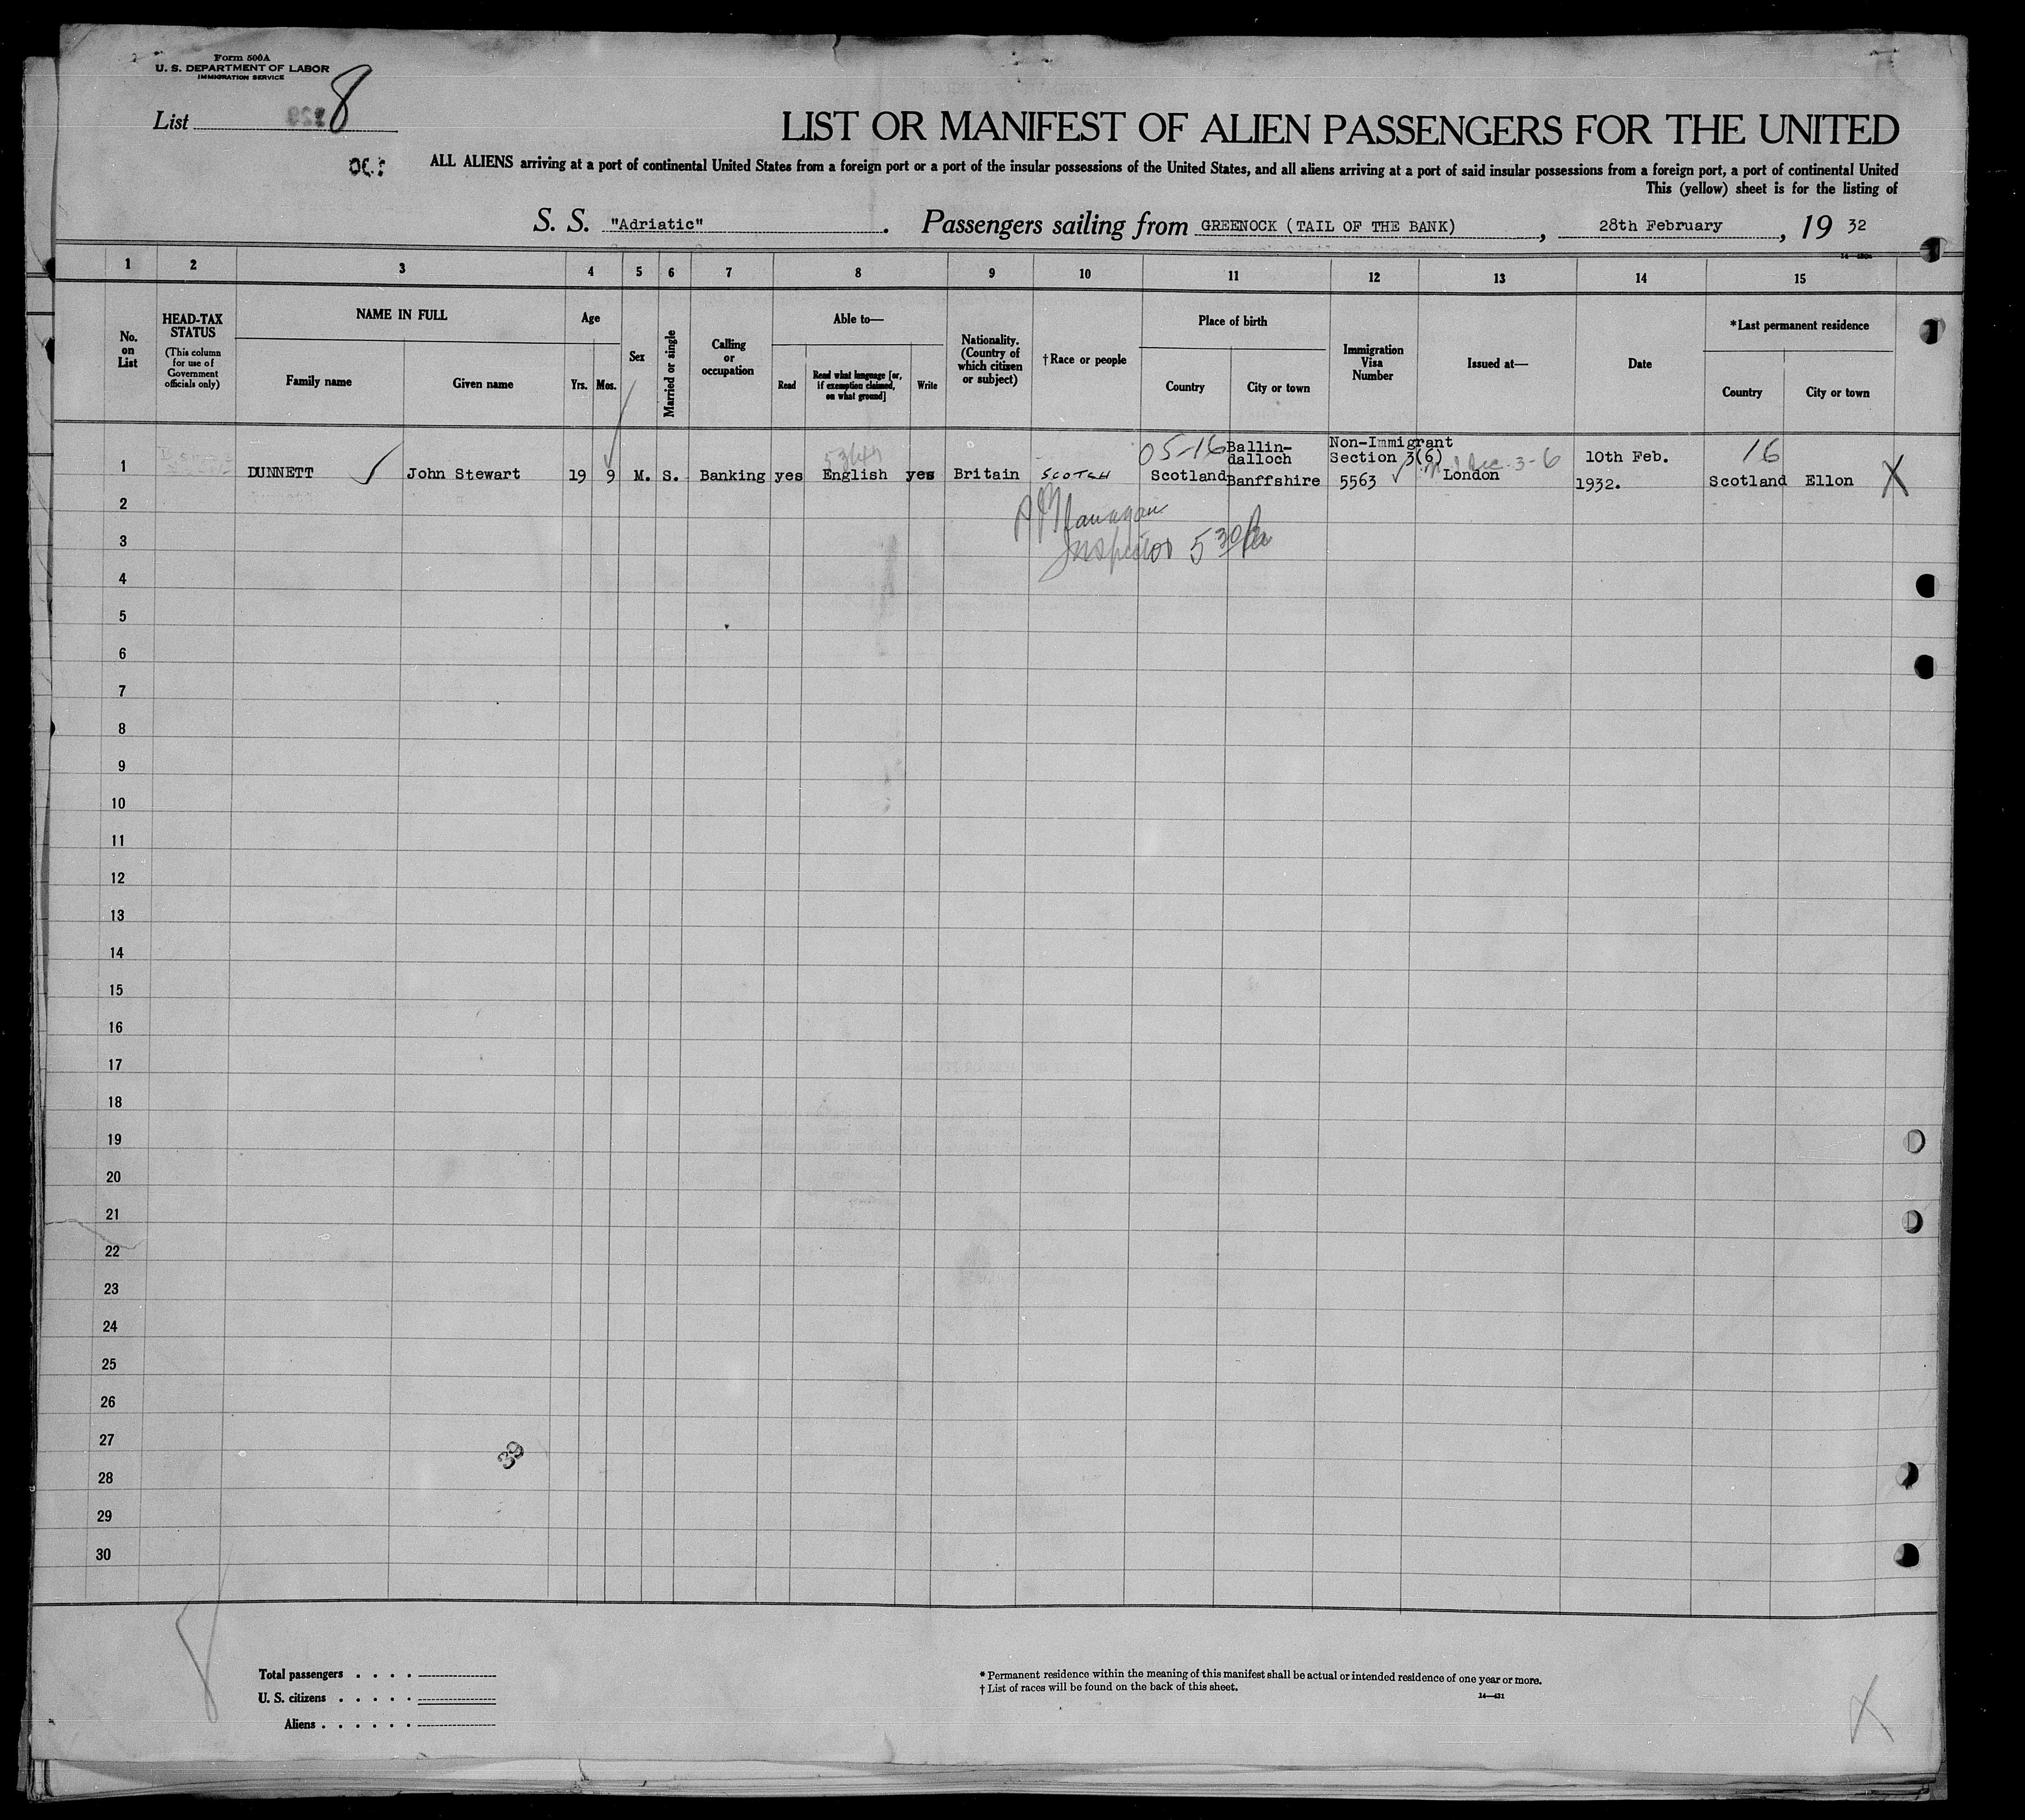 Form 500A
U. S. DEPARTMENT OF LABOR
IMMIGRATION SERVICE
List 8
LIST OR MANIFEST OF ALIEN PASSENGERS FOR THE UNITED
ALL ALIENS arriving at a port of continental United States from a foreign port or a port of the insular possessions of the United States, and all aliens arriving at a port of said insular possessions from a foreign port, a port of continental United
This (yellow) sheet is for the listing of
S. S. "Adriatic". Passengers sailing from GREENOCK (TAIL OF THE BANK), 28th February, 19 32
1 2 3 4 5 6 7 8 9 10 11 12 13 14 15
No. on List
HEAD-TAX STATUS
(This column for use of Government officials only)
NAME IN FULL
Family name
Given name
Age
Yrs.
Mos.
Sex
Married or single
Calling or occupation
Able to—
Read
Read what language [or, if exemption claimed, on what ground]
Write
Nationality. (Country of which citizen or subject)
†Race or people
Place of birth
Country
City or town
Immigration Visa Number
Issued at—
Date
*Last permanent residence
Country
City or town
05-16 Ballin- Non-Immigrant
dalloch Section 3(6) 3-6 10th Feb. 16
1 DUNNETT John Stewart 19 9 M. S. Banking yes English yes Britain SCOTCH Scotland Banffshire 5563 London 1932. Scotland Ellon X
2
Inspector 5 30
3
4
5
6
7
8
9
10
11
12
13
14
15
16
17
18
19
20
21
22
23
24
25
26
27
39
28
29
30
Total passengers . . . .
U. S. citizens . . . . .
Aliens . . . . . .
* Permanent residence within the meaning of this manifest shall be actual or intended residence of one year or more.
† List of races will be found on the back of this sheet.
14—431
X